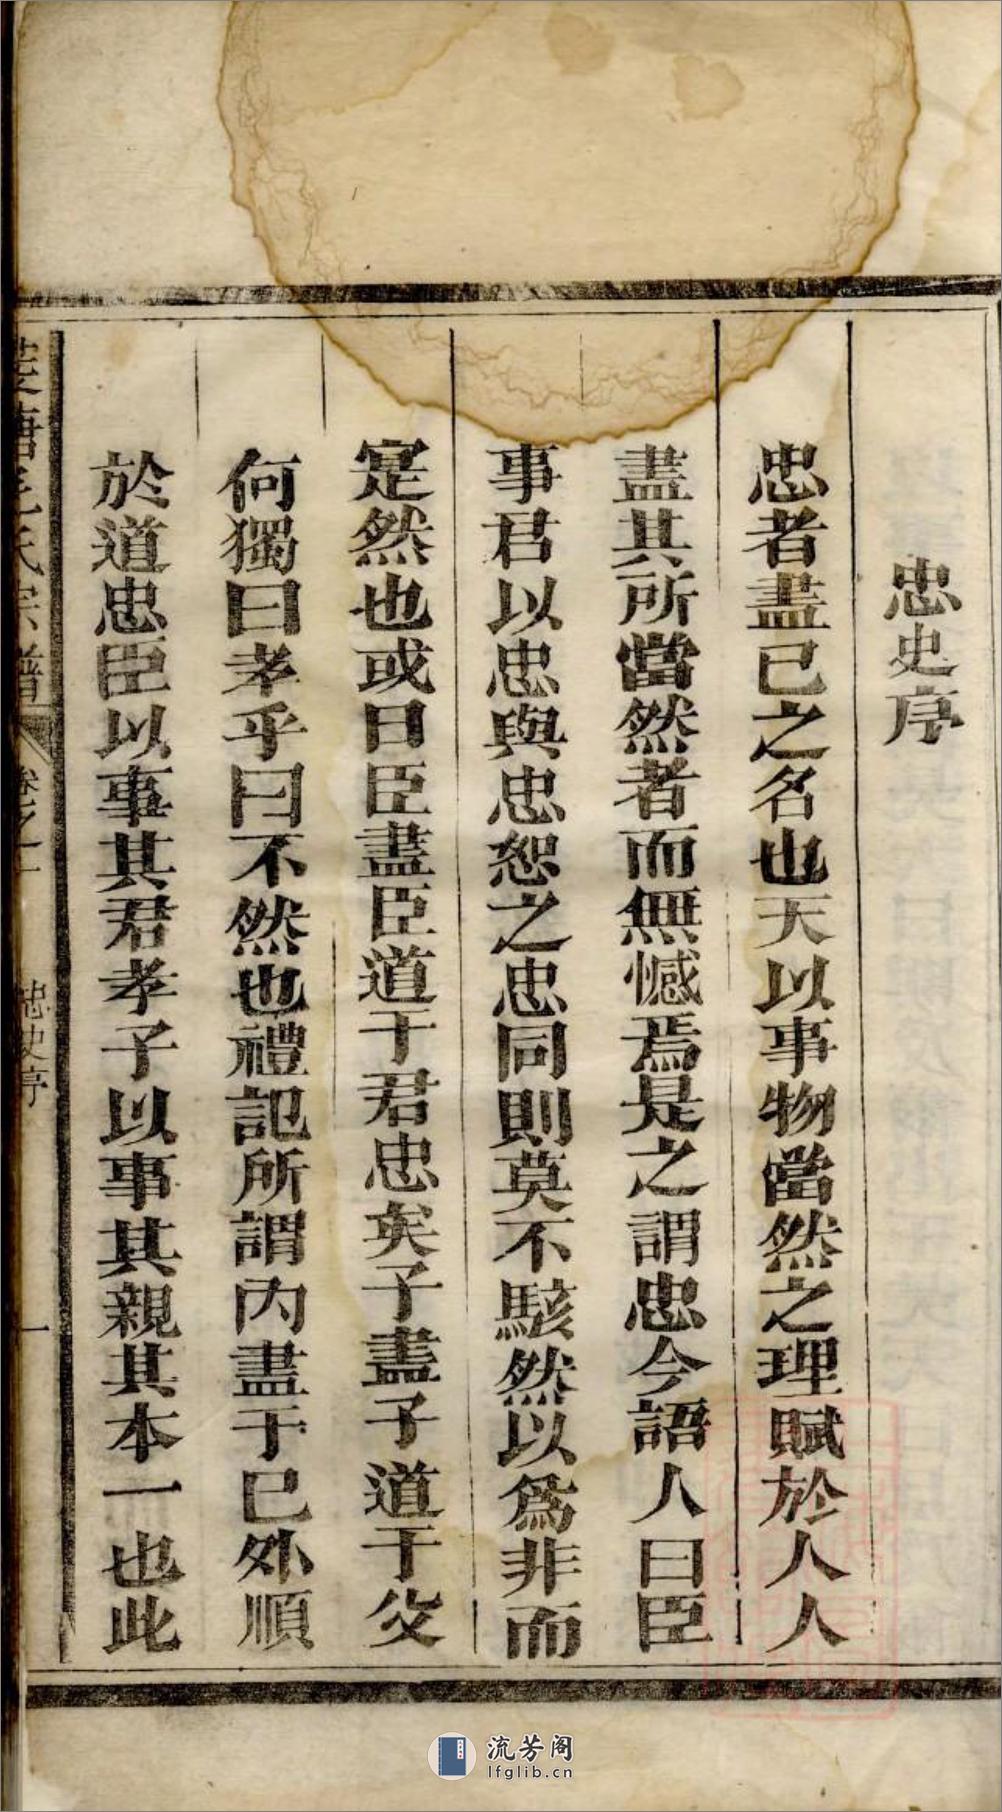 忠史序
忠者盡己之名也天以事物當然之理賦於人人
盡其所當然者而無憾焉是之謂忠今語人曰臣
事君以忠與忠恕之忠同則莫不駭然以爲非而
寔然也或曰臣盡臣道于君忠矣子盡子道于父
何獨曰孝乎曰不然也禮記所謂內盡于己外順
於道忠臣以事其君孝子以事其親其本一也此
氏宗譜
卷之一
忠史序
一
流芳阁
lfglib.cn